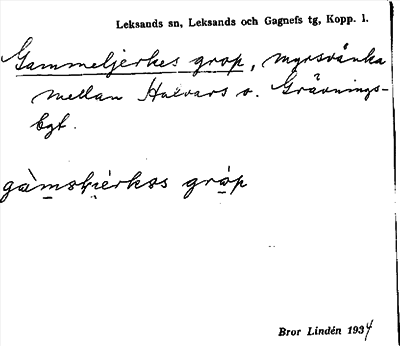 Leksands sn, Leksands och Gagnefs tg, Kopp. l.
Gammeljerkes grop, myrsvänka
mellan Halvars o. Grävnings-
bgt.
gàmstiérkəs gróp
Bror Lindén 1934